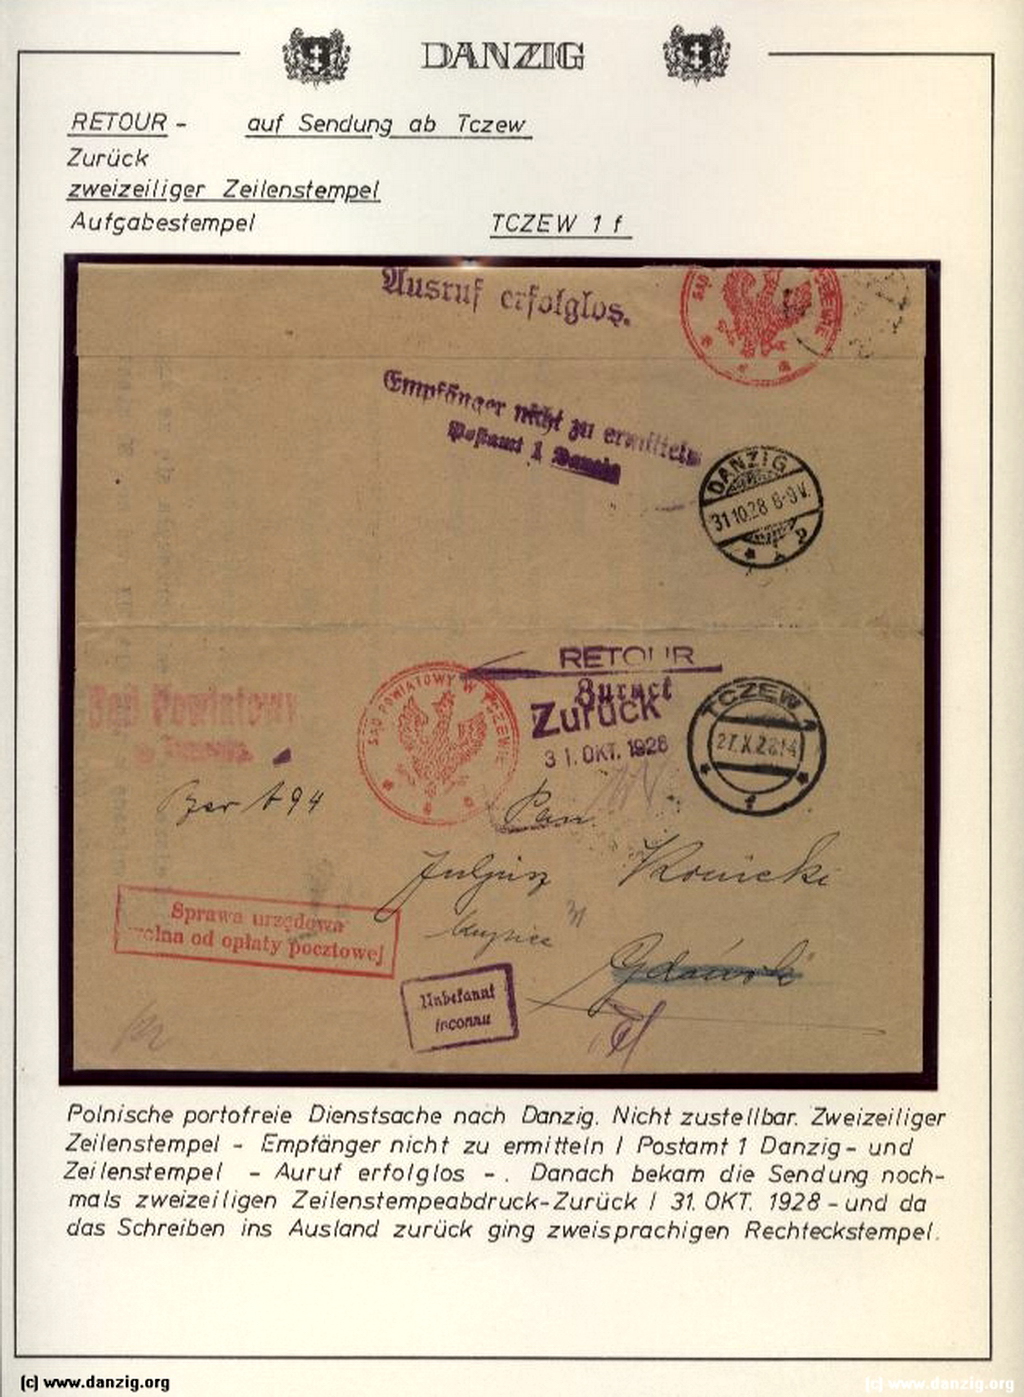 DANZIG
RETOUR - auf Sendung ab Tczew
Zurück
zweizeiliger Zeilenstempel
Aufgabestempel TCZEW 1 f
Ausruf erfolglos.
SĄD TCZEWIE
Empfänger nicht zu ermitteln
Postamt 1 Danzig
DANZIG
31.10.28 8-9V.
RETOUR
Zurück
Zurück
31. OKT. 1928
SĄD POWIATOWY W TCZEWIE
TCZEW 1
27.X.28 14
f
Sąd Powiatowy
A 94
Pan
Juljusz
Gdańsk
Sprawa urzędowa
wolna od opłaty pocztowej
Unbekannt
inconnu
Polnische portofreie Dienstsache nach Danzig. Nicht zustellbar. Zweizeiliger
Zeilenstempel - Empfänger nicht zu ermitteln / Postamt 1 Danzig - und
Zeilenstempel - Auruf erfolglos -. Danach bekam die Sendung noch-
mals zweizeiligen Zeilenstempeabdruck-Zurück / 31. OKT. 1928 - und da
das Schreiben ins Ausland zurück ging zweisprachigen Rechteckstempel.
(c) www.danzig.org (c) www.danzig.org